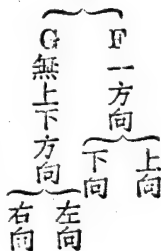 F一方向
上向
下向
G無上下方向
左向
右向